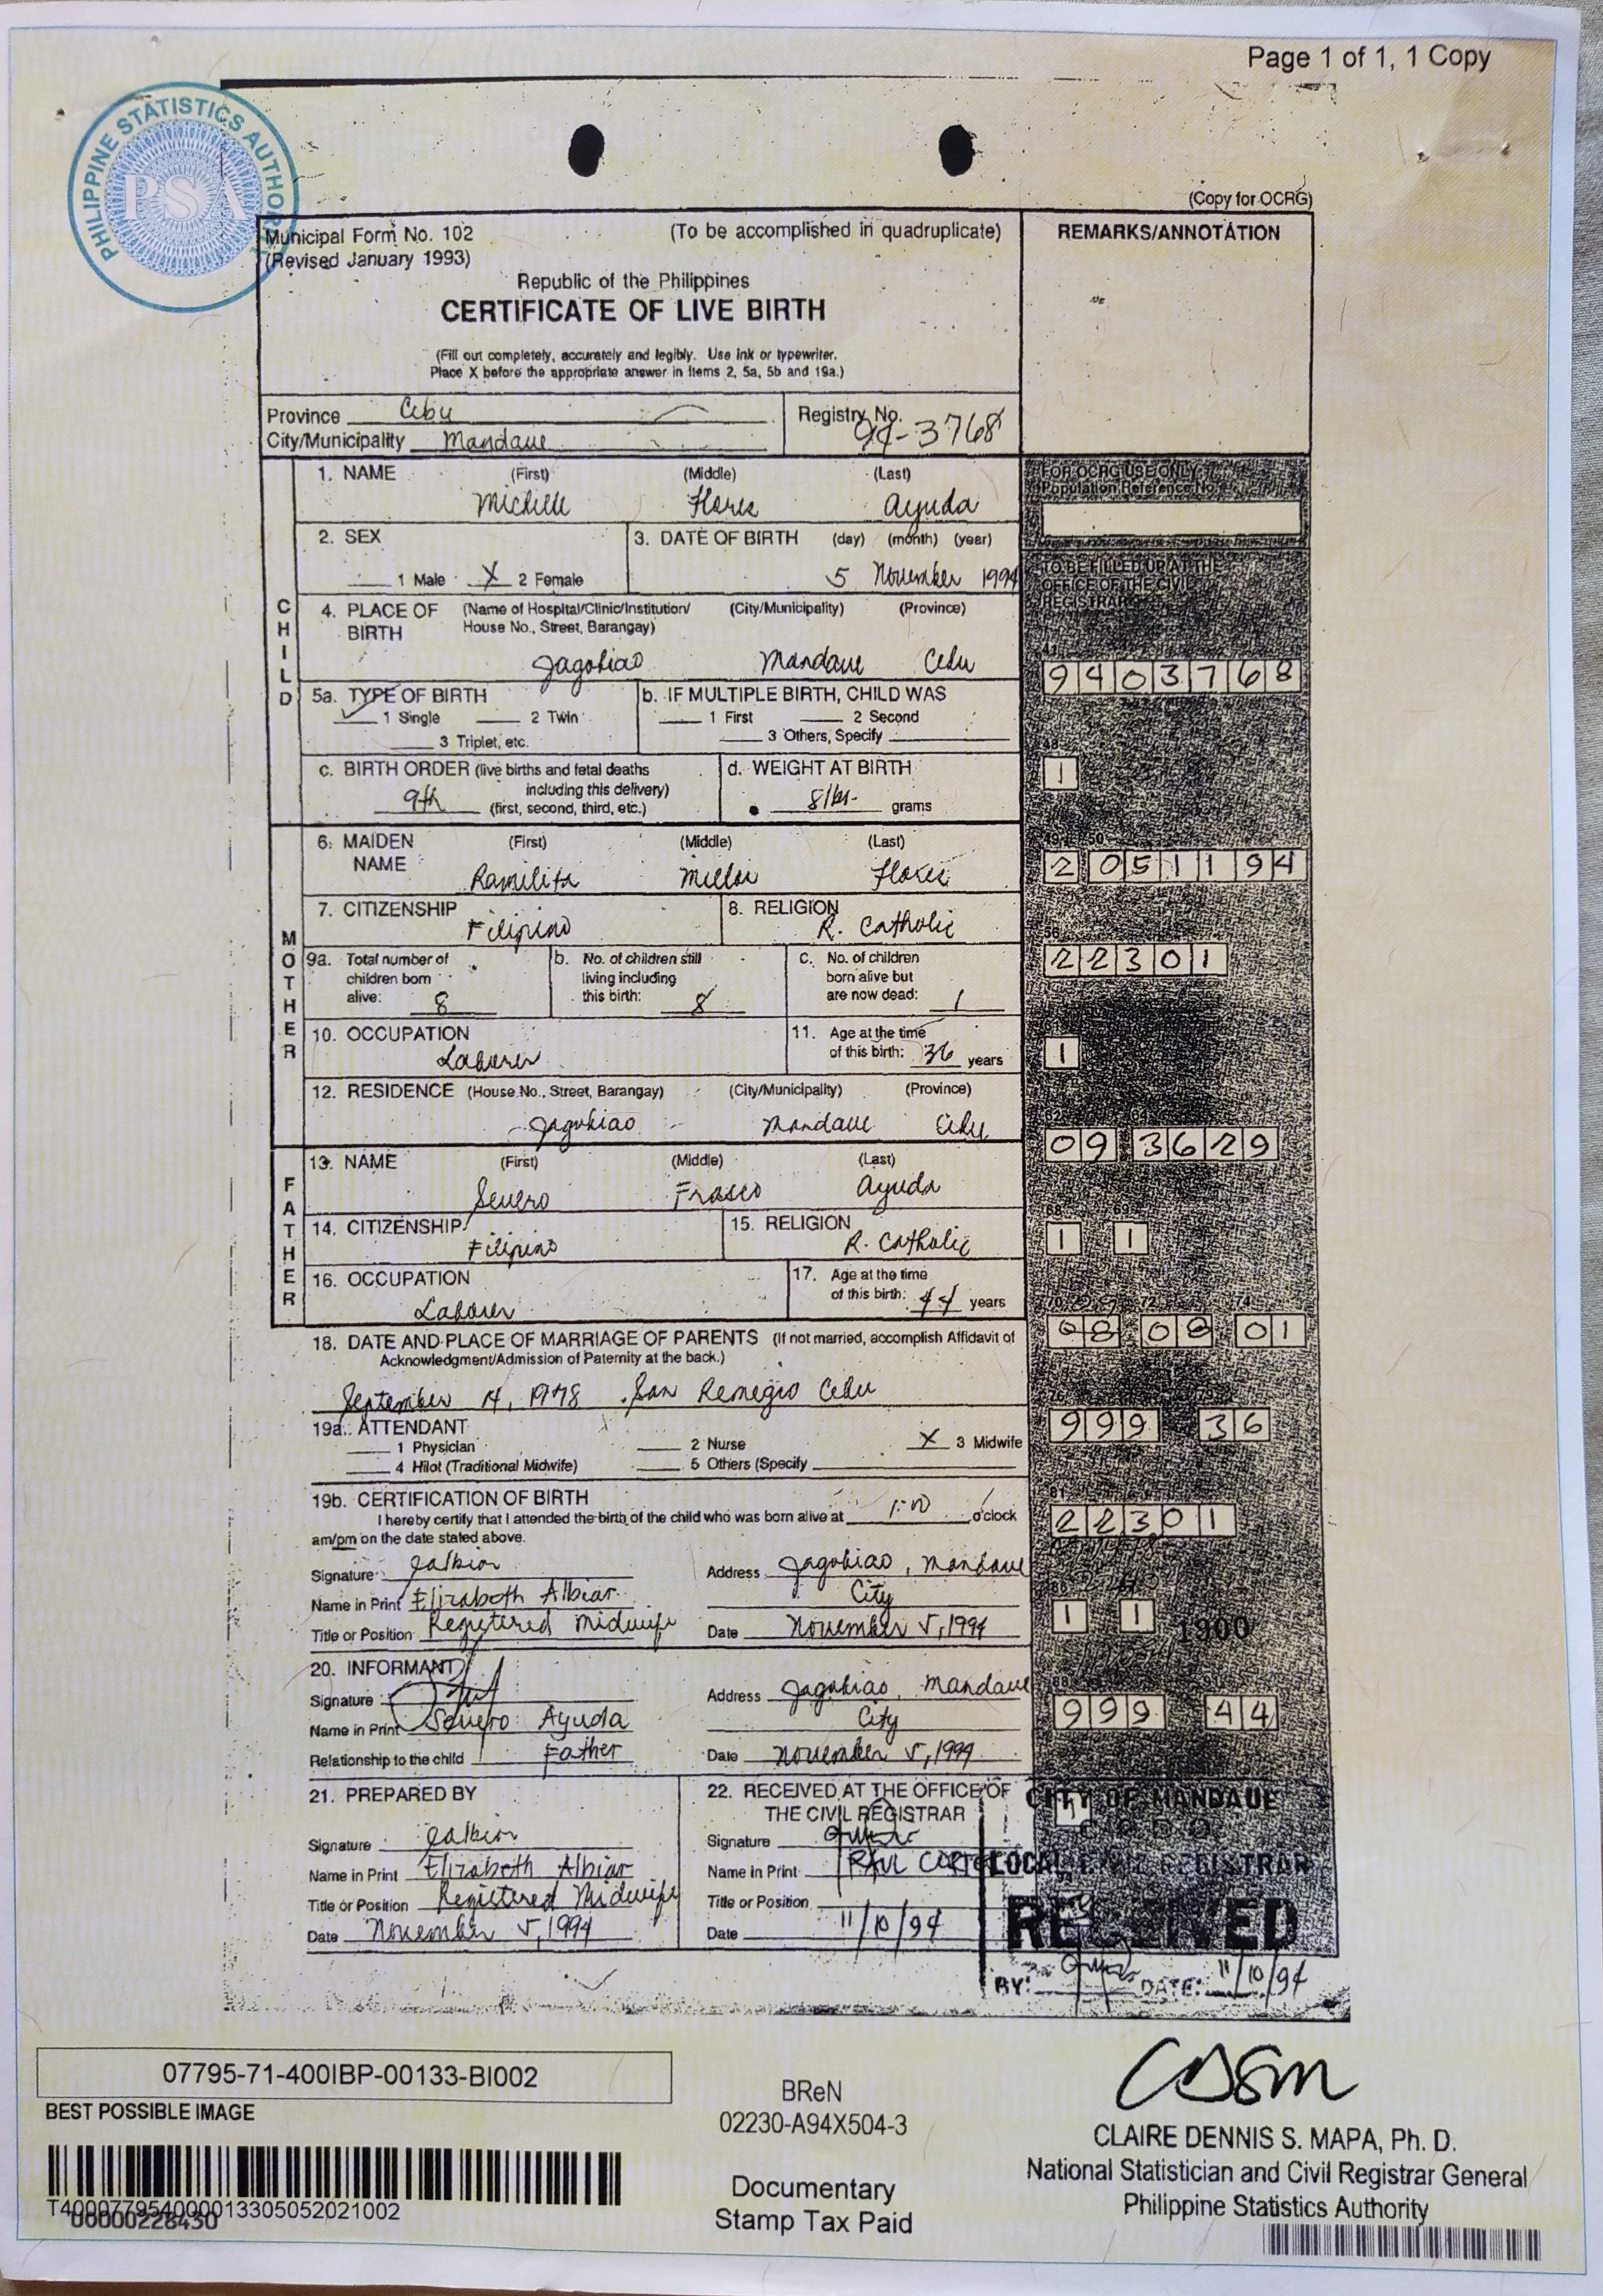 Page 1 of 1, 1 Copy
PHILIPPINE STATISTICS AUTHORITY
PSA
(Copy for OCRG)
Municipal Form No. 102 (To be accomplished in quadruplicate)
(Revised January 1993)
REMARKS/ANNOTATION
Republic of the Philippines
CERTIFICATE OF LIVE BIRTH
(Fill out completely, accurately and legibly. Use ink or typewriter.
Place X before the appropriate answer in Items 2, 5a, 5b and 19a.)
Province Cebu
City/Municipality Mandaue
Registry No. 94-3768
CHILD
1. NAME (First) (Middle) (Last)
Michelle Flores Ayuda
2. SEX
1 Male X 2 Female
3. DATE OF BIRTH (day) (month) (year)
5 November 1994
4. PLACE OF BIRTH (Name of Hospital/Clinic/Institution/ House No., Street, Barangay) (City/Municipality) (Province)
Jagobiao Mandaue Cebu
5a. TYPE OF BIRTH
1 Single 2 Twin
3 Triplet, etc.
b. IF MULTIPLE BIRTH, CHILD WAS
1 First 2 Second
3 Others, Specify
c. BIRTH ORDER (live births and fetal deaths
including this delivery)
9th (first, second, third, etc.)
d. WEIGHT AT BIRTH
grams
MOTHER
6. MAIDEN NAME (First) (Middle) (Last)
Ramilita Flores
7. CITIZENSHIP
Filipino
8. RELIGION
R. Catholic
9a. Total number of
children born
alive: 8
b. No. of children still
living including
this birth: 8
c. No. of children
born alive but
are now dead: 1
10. OCCUPATION
Laborer
11. Age at the time
of this birth: 36 years
12. RESIDENCE (House No., Street, Barangay) (City/Municipality) (Province)
Jagobiao Mandaue Cebu
FATHER
13. NAME (First) (Middle) (Last)
Severo Frasco Ayuda
14. CITIZENSHIP
Filipino
15. RELIGION
R. Catholic
16. OCCUPATION
Laborer
17. Age at the time
of this birth: 44 years
18. DATE AND PLACE OF MARRIAGE OF PARENTS (If not married, accomplish Affidavit of
Acknowledgment/Admission of Paternity at the back.)
September 14, 1978 San Remegio Cebu
19a. ATTENDANT
1 Physician 2 Nurse X 3 Midwife
4 Hilot (Traditional Midwife) 5 Others (Specify
19b. CERTIFICATION OF BIRTH
I hereby certify that I attended the birth of the child who was born alive at 1:00 o'clock
am/pm on the date stated above.
Signature
Name in Print Elizabeth Albiar
Title or Position Registered Midwife
Address Jagobiao, Mandaue
City
Date November 5, 1994
20. INFORMANT
Signature
Name in Print Severo Ayuda
Relationship to the child Father
Address Jagobiao, Mandaue
City
Date November 5, 1994
21. PREPARED BY
Signature
Name in Print Elizabeth Albiar
Title or Position Registered Midwife
Date November 5, 1994
22. RECEIVED AT THE OFFICE OF
THE CIVIL REGISTRAR
Signature
Name in Print RAUL
Title or Position
Date 11/10/94
FOR OCRG USE ONLY
Population Reference No.
TO BE FILLED UP AT THE
OFFICE OF THE CIVIL
REGISTRAR
9403768
1
2 051194
22301
1
09 3629
1 1
08 01
999 36
22301
1 1 1900
999 44
CITY OF MANDAUE
LOCAL CIVIL REGISTRAR
RECEIVED
BY: DATE: 11/10/94
07795-71-400IBP-00133-BI002
BEST POSSIBLE IMAGE
T400077954000013305052021002
00000228430
BReN
02230-A94X504-3
Documentary
Stamp Tax Paid
CLAIRE DENNIS S. MAPA, Ph. D.
National Statistician and Civil Registrar General
Philippine Statistics Authority